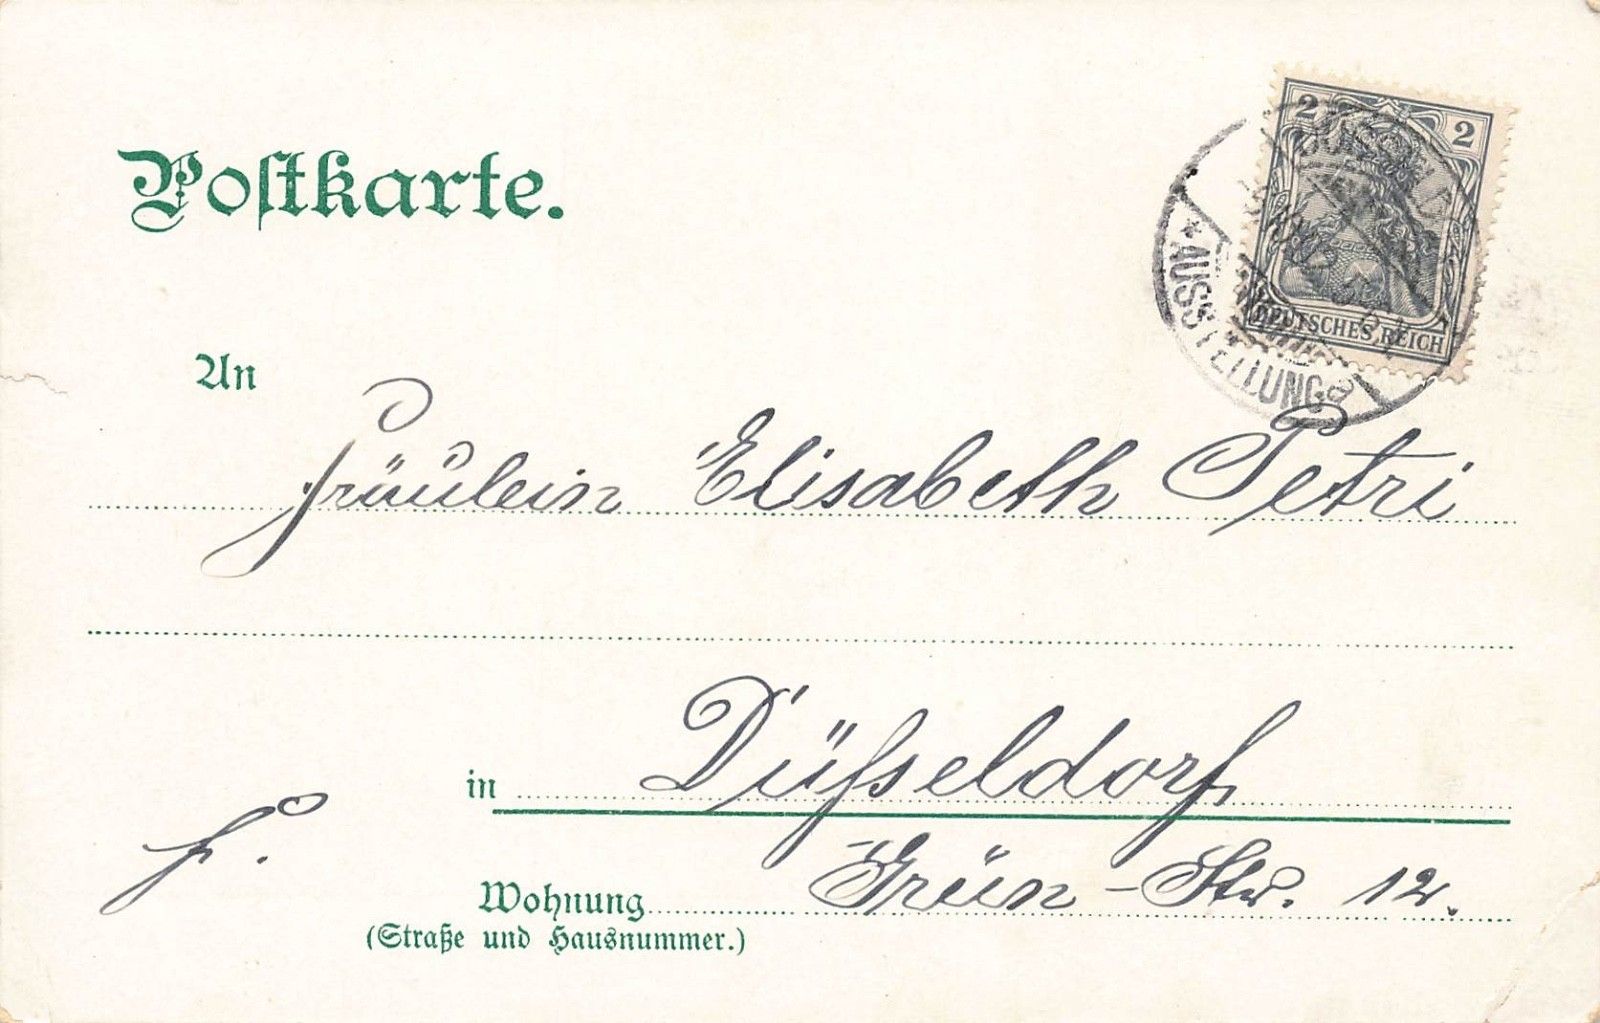 Postkarte.
2 2
DEUTSCHES REICH
* AUSSTELLUNG d
An
Fräulein Elisabeth Petri
in Düsseldorf
F.
Wohnung Grün-Str. 12.
(Straße und Hausnummer.)